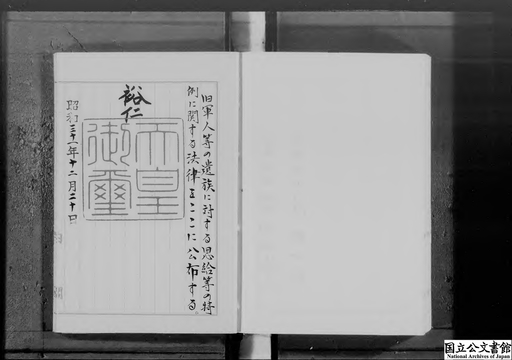 旧軍人等の遺族に対する恩給等の特
例に関する法律をここに公布する。
裕仁
天皇
御璽
昭和三十一年十二月二十日
国立公文書館
National Archives of Japan